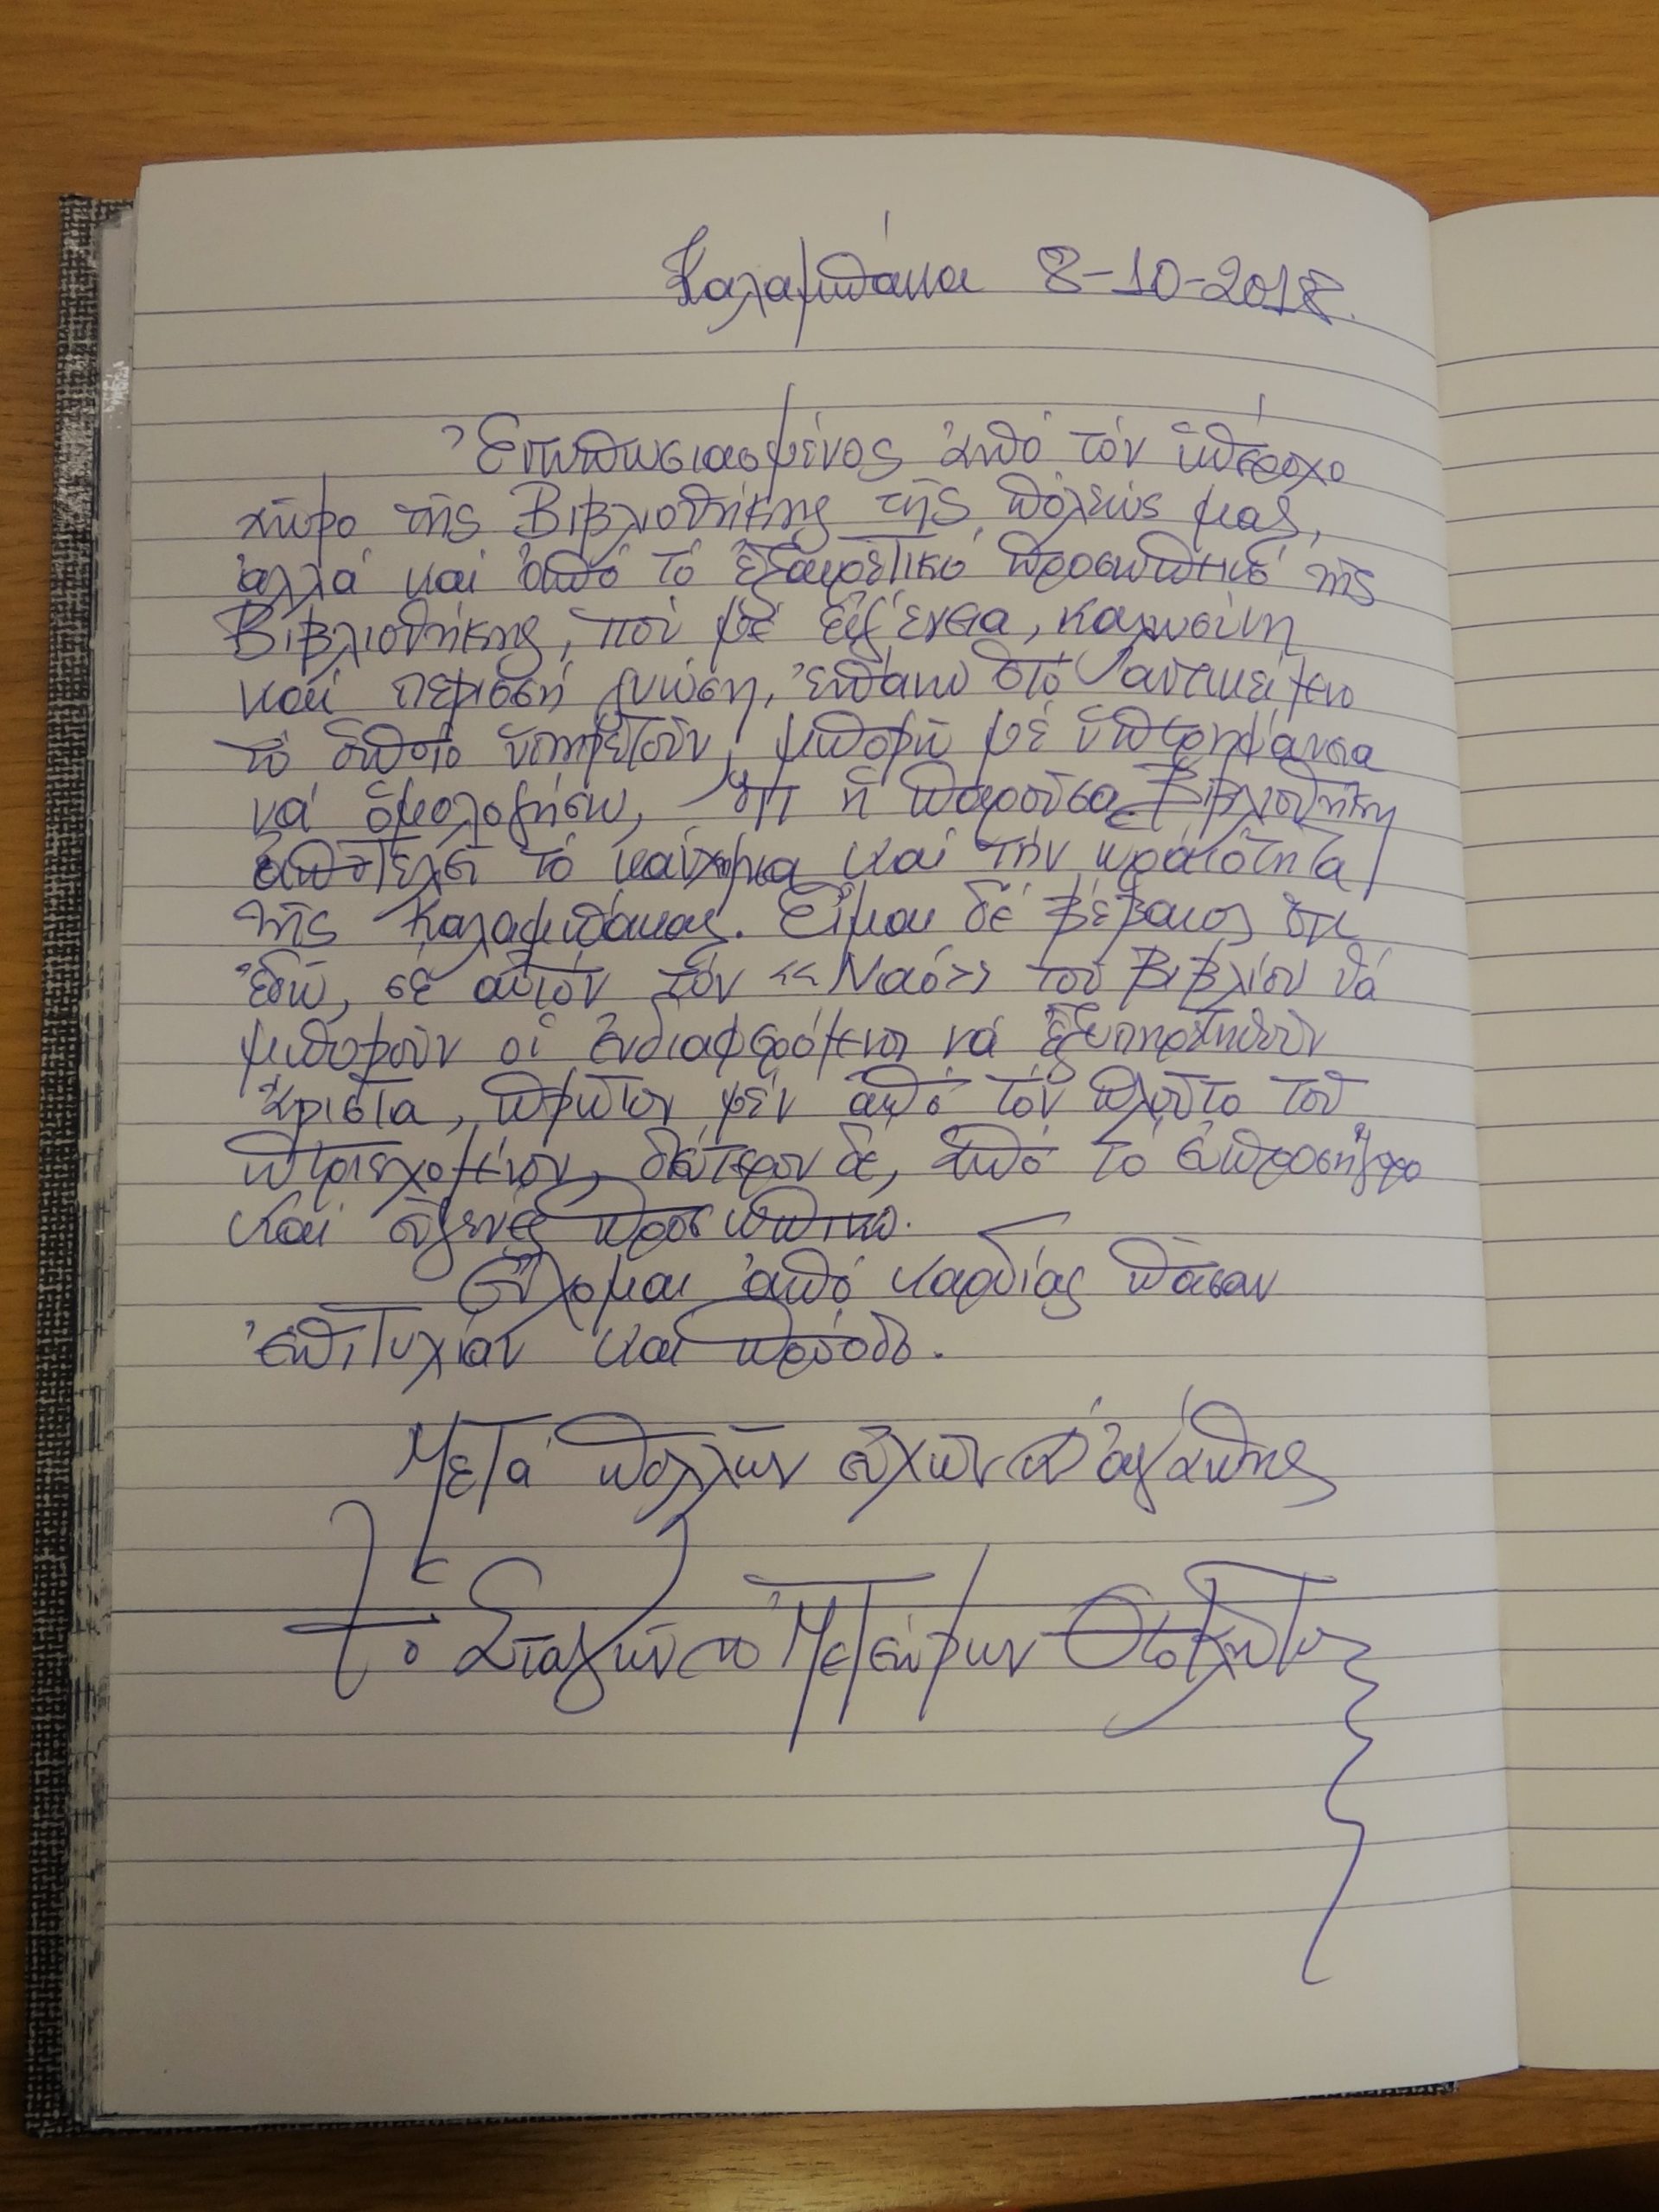 Καλαμπάκα 8-10-2018.
Ἐντυπωσιασμένος ἀπό τόν ὑπέροχο
χῶρο τῆς Βιβλιοθήκης τῆς πόλεώς μας,
ἀλλά καί ἀπό τό ἐξαιρετικό προσωπικό τῆς
Βιβλιοθήκης, πού μέ εὐγένεια, καλωσύνη
καί περισσή γνώση, ἐπάνω στό ἀντικείμενο
τό ὁποῖο ὑπηρετοῦν, μπορῶ μέ ὑπερηφάνεια
νά ὁμολογήσω, ὅτι ἡ παροῦσα Βιβλιοθήκη
ἀποτελεῖ τό καύχημα καί τήν ὡραιότητα
τῆς Καλαμπάκας. Εἶμαι δέ βέβαιος ὅτι
ἐδῶ, σέ αὐτόν τόν «Ναό» τοῦ Βιβλίου θά
μποροῦν οἱ ἐνδιαφερόμενοι νά ἐξυπηρετηθοῦν
ἄριστα, πρῶτον μέν ἀπό τόν πλοῦτο τοῦ
περιεχομένου, δεύτερον δέ, ἀπό τό εὐπροσήγορο
καί εὐγενές προσωπικό.
Εὔχομαι ἀπό καρδίας πᾶσαν
ἐπιτυχίαν καί πρόοδο.
Μετά πολλῶν εὐχῶν ἀγάπης
† ὁ Σταγῶν Μετεώρων Θεόκλητος